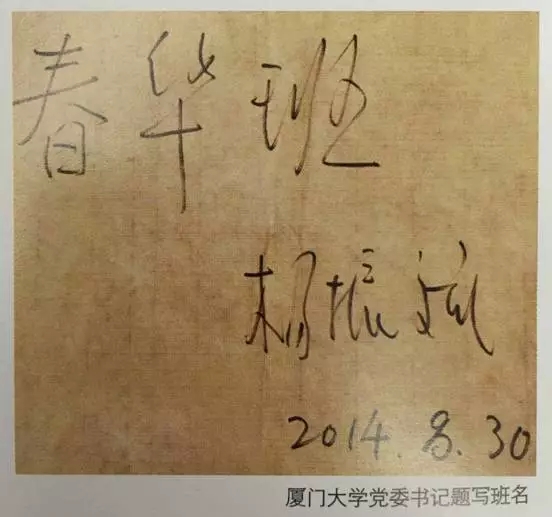 春华班
杨振斌
2014.8.30
厦门大学党委书记题写班名